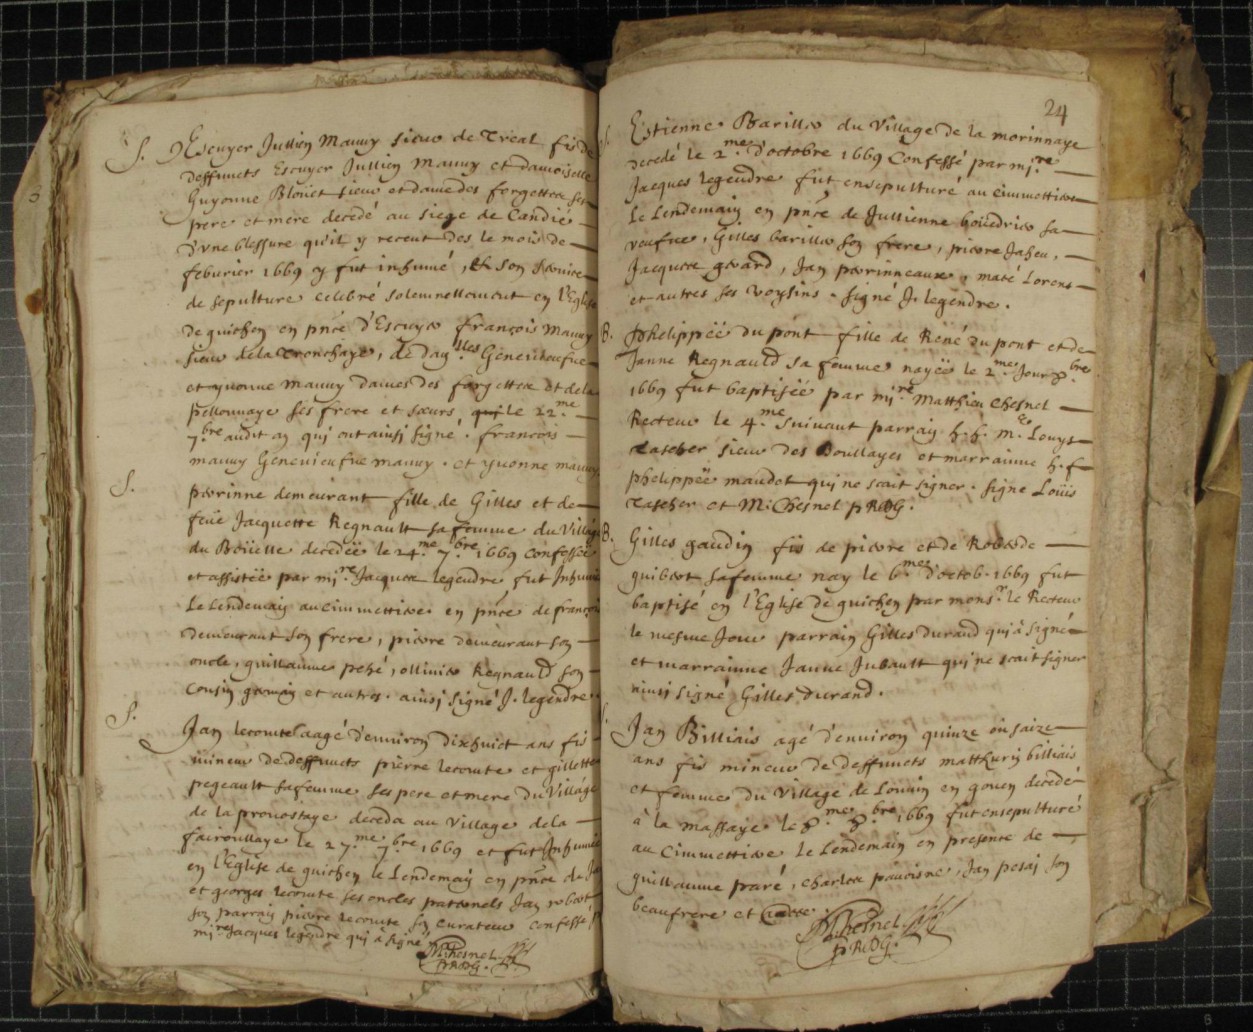 S. Escuyer Jullien Mauny sieur de Treal fis de
deffuncts Escuyer Jullien Mauny et damoiselle
Guyonne Blouet sieur et dame des forgettes ses
pere et mere decedé au siege de Candie
d'une blessure qu'il y receut des le mois de
febvrier 1669 y fut inhumé, & son service
de sepulture celebré solemnellement en l'Eglise
de guichen en pnce d'Escuyer françois Mauny
sieur de la Tronchaye, de dames Genevieufve
et yvonne Mauny dames des forgettes et de la
pellonnaye ses frere et sœurs le 22.me
7.bre audit an qui ont ainsi signé. francois
mauny Genevieufve mauny. et yvonne mauny
S. perrinne demeurant fille de Gilles et de
feüe Jacquette Regnault sa femme du Village
du Boüelle decedëe le 24.me 7.bre 1669 Confessëe
et assistëe par mi.re Jacques legendre fut Inhumëe
Le Lendemain au cimmettiere en pnce de françois
demeurant son frere, pierre demeurant son
oncle, guillaume pehé, ollivier Regnauld son
Cousin germain et autres. ainsi signé J. legendre
S. Jan lecomte aagé d'environ dixhuict ans fis
mineur de deffuncts pierre lecomte et gillette
pegeault sa femme ses pere et mere du Village
de la provostaye deceda au Village de la
fairoullaye le 27.me 7.bre 1669 et fut Inhumé
en l'Eglise de guichen le Lendemain en pnce de Jan
et georges lecomte ses oncles patternels Jan robert
son parrain pierre lecomte son curateur confessé p
mi.re Jacques legendre qui a signé
M: Chesnel.
pRDG.
24
S. Estienne Barillier du Village de la morinnaye
decedé le 2.me d'octobre 1669 Confessé par mi.re
Jacques legendre fut ensepulturé au Cimmettiere
Le Lendemain en pnce de Jullienne boüedrier sa
veufve, Gilles barillier son frere, pierre Jaheu,
Jacques gerard, Jan perrinneaux, maté Lorent
et autres ses voysins. signé J. legendre.
B. Phelippëe du pont fille de Rëné du pont et de
Janne Regnauld sa femme nayëe le 2.me Jour 8.bre
1669 fut baptisëe par mi.re Matthieu Chesnel
Recteur le 4.me suivant parrain h. h. m.e Louys
Tascher sieur des Boullayes et marrainne h. f
phelippëe maudet qui ne scait signer. signe Loüis
Tascher et M: Chesnel pRDG.
B. Gilles gaudin fis de pierre et de Roberde
guibert sa femme nay le 6.me d'octob. 1669 fut
baptisé en l'Eglise de guichen par mons.r le Recteur
le mesme Jour parrain Gilles durand qui à signé
et marrainne Janne Jubault qui ne scait signer
ainsi signé Gilles durand.
S. Jan Billiais agé d'environ quinze ou saize
ans fis mineur de deffuncts matthurin billiais
et femme du Village de Louvin en goven decedé
à la massaye le 8.me 8.bre 1669 fut ensepulturé
au Cimmettiere le Lendemain en presence de
guillaume praré, charles pavoisne, Jan petai son
beaufrere et
M: Chesnel.
pRDG.